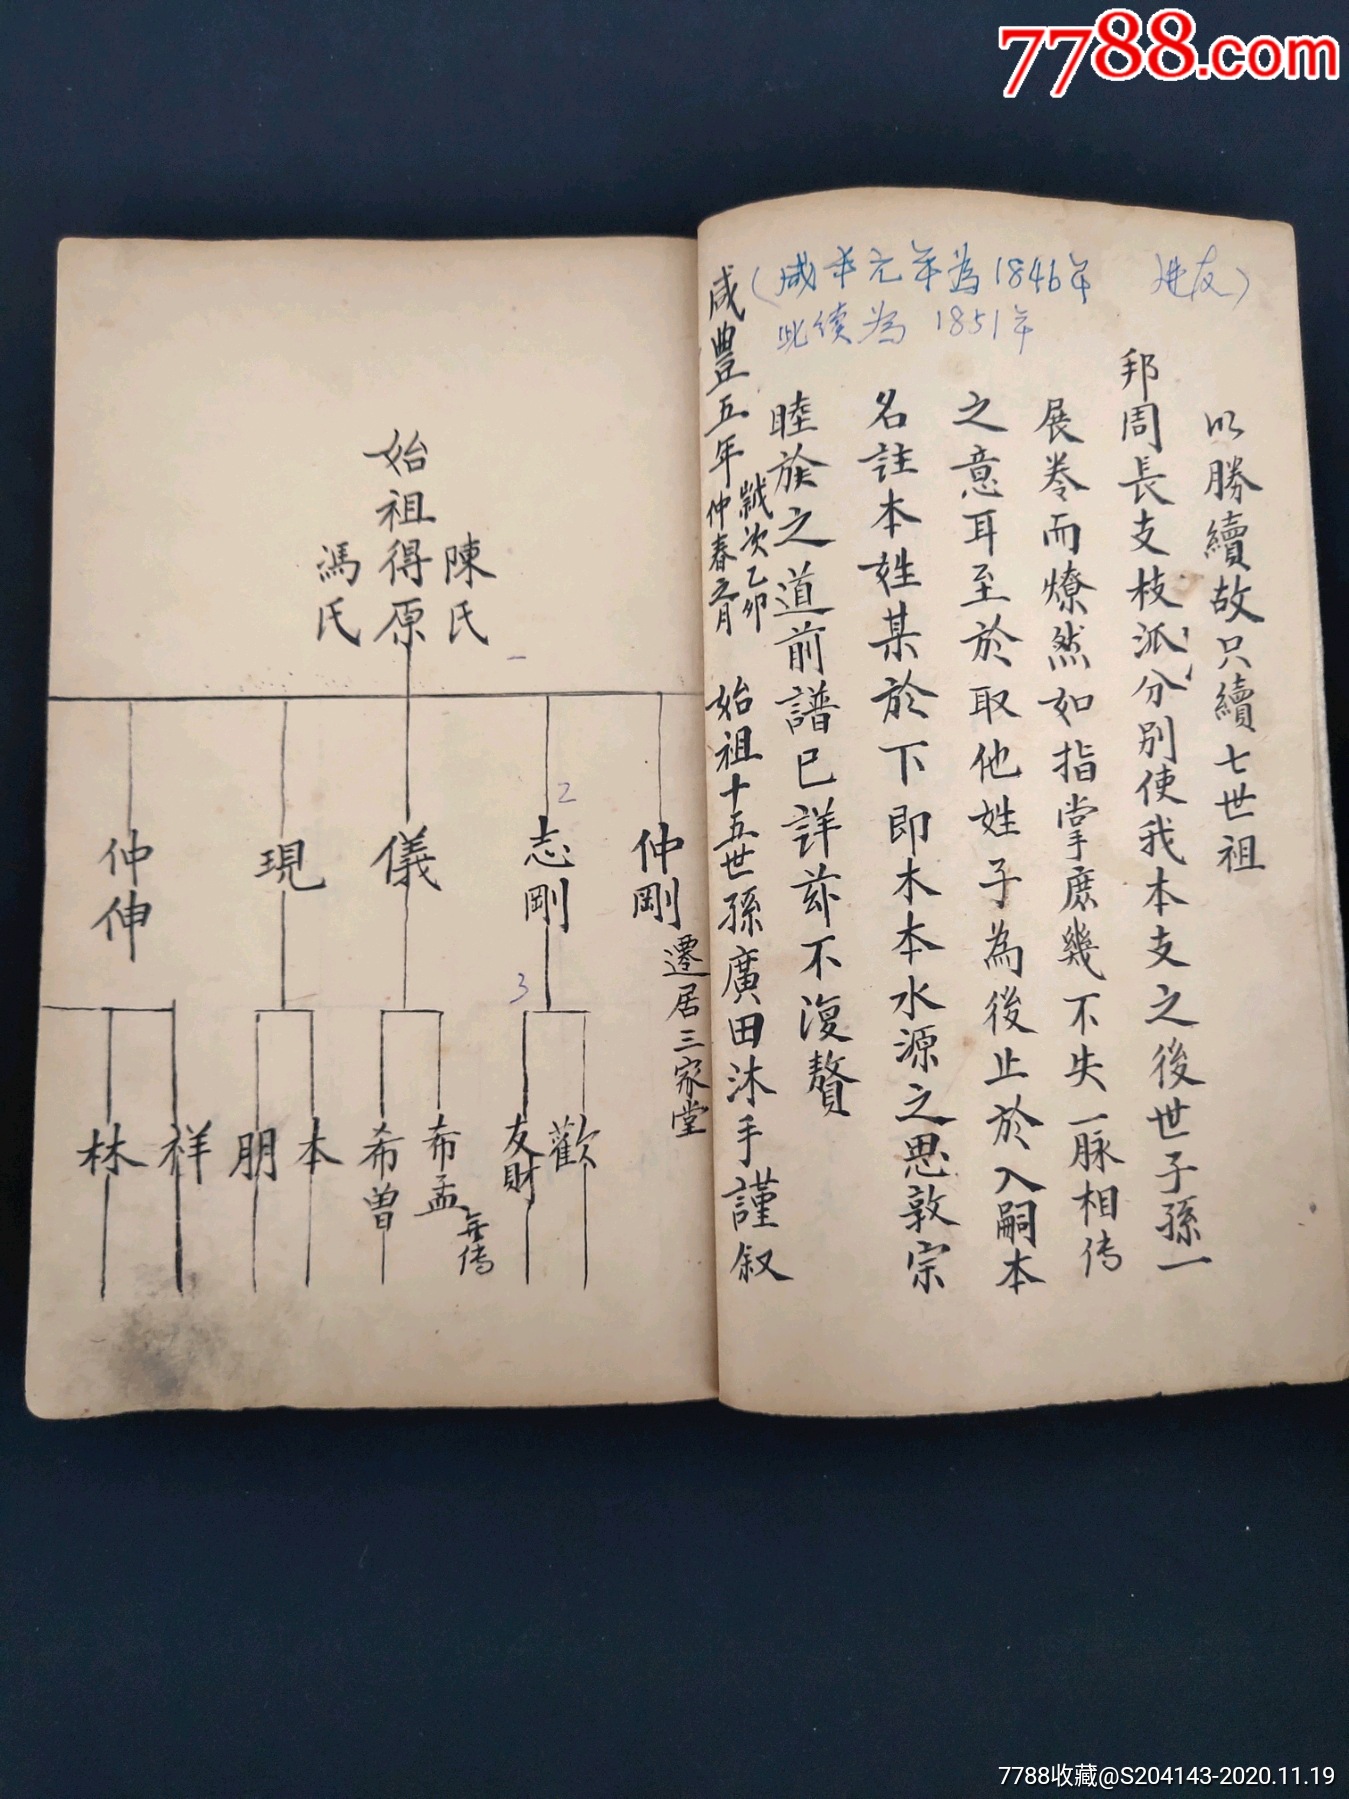 7788.com
(咸丰元年為1846年 进友)
此续為 1851年
以勝續故只續七世祖
邦周長支枝派分別使我本支之後世子孫一
展卷而燎然如指掌庶幾不失一脉相传
之意耳至於取他姓子為後止於入嗣本
名註本姓某於下即木本水源之思敦宗
睦族之道前譜已詳茲不復贅
咸豐五年 歲次乙卯
仲春之月 始祖十五世孫廣田沐手謹叙
陳氏
始祖得原
馮氏
一
2
3
仲剛 遷居三家堂
志剛
儀
現
仲伸
歡
友財
希孟 無传
希曾
本
朋
祥
林
7788收藏@S204143-2020.11.19